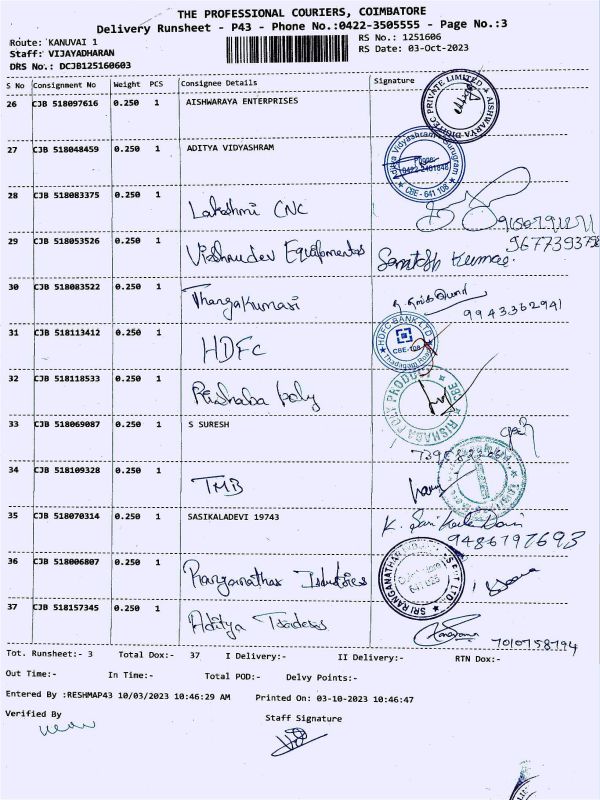 THE PROFESSIONAL COURIERS, COIMBATORE
Delivery Runsheet - P43 - Phone No.:0422-3505555 - Page No.:3
Route: KANUVAI 1
RS No.: 1251606
Staff: VIJAYADHARAN
RS Date: 03-Oct-2023
DRS No.: DCJB125160603
S No Consignment No Weight PCS Consignee Details Signature
26 CJB 518097616 0.250 1 AISHWARAYA ENTERPRISES
27 CJB 518048459 0.250 1 ADITYA VIDYASHRAM
28 CJB 518083375 0.250 1 Lakshmi CNC
29 CJB 518053526 0.250 1 Vishnudev Equipmentes Santosh Kumar.
30 CJB 518083522 0.250 1 Thangakumari 9943362941
31 CJB 518113412 0.250 1 HDFC
HDFC BANK LTD
CBE-108
32 CJB 518118533 0.250 1 Rishaba Poly
33 CJB 518069087 0.250 1 S SURESH
34 CJB 518109328 0.250 1 TMB
35 CJB 518070314 0.250 1 SASIKALADEVI 19743
9486797693
36 CJB 518006807 0.250 1 Ranganathar Industries
37 CJB 518157345 0.250 1 Aditya Traders
7010758794
Tot. Runsheet:- 3 Total Dox:- 37 I Delivery:- II Delivery:- RTN Dox:-
Out Time:- In Time:- Total POD:- Delvy Points:-
Entered By :RESHMAP43 10/03/2023 10:46:29 AM Printed On: 03-10-2023 10:46:47
Verified By
Staff Signature